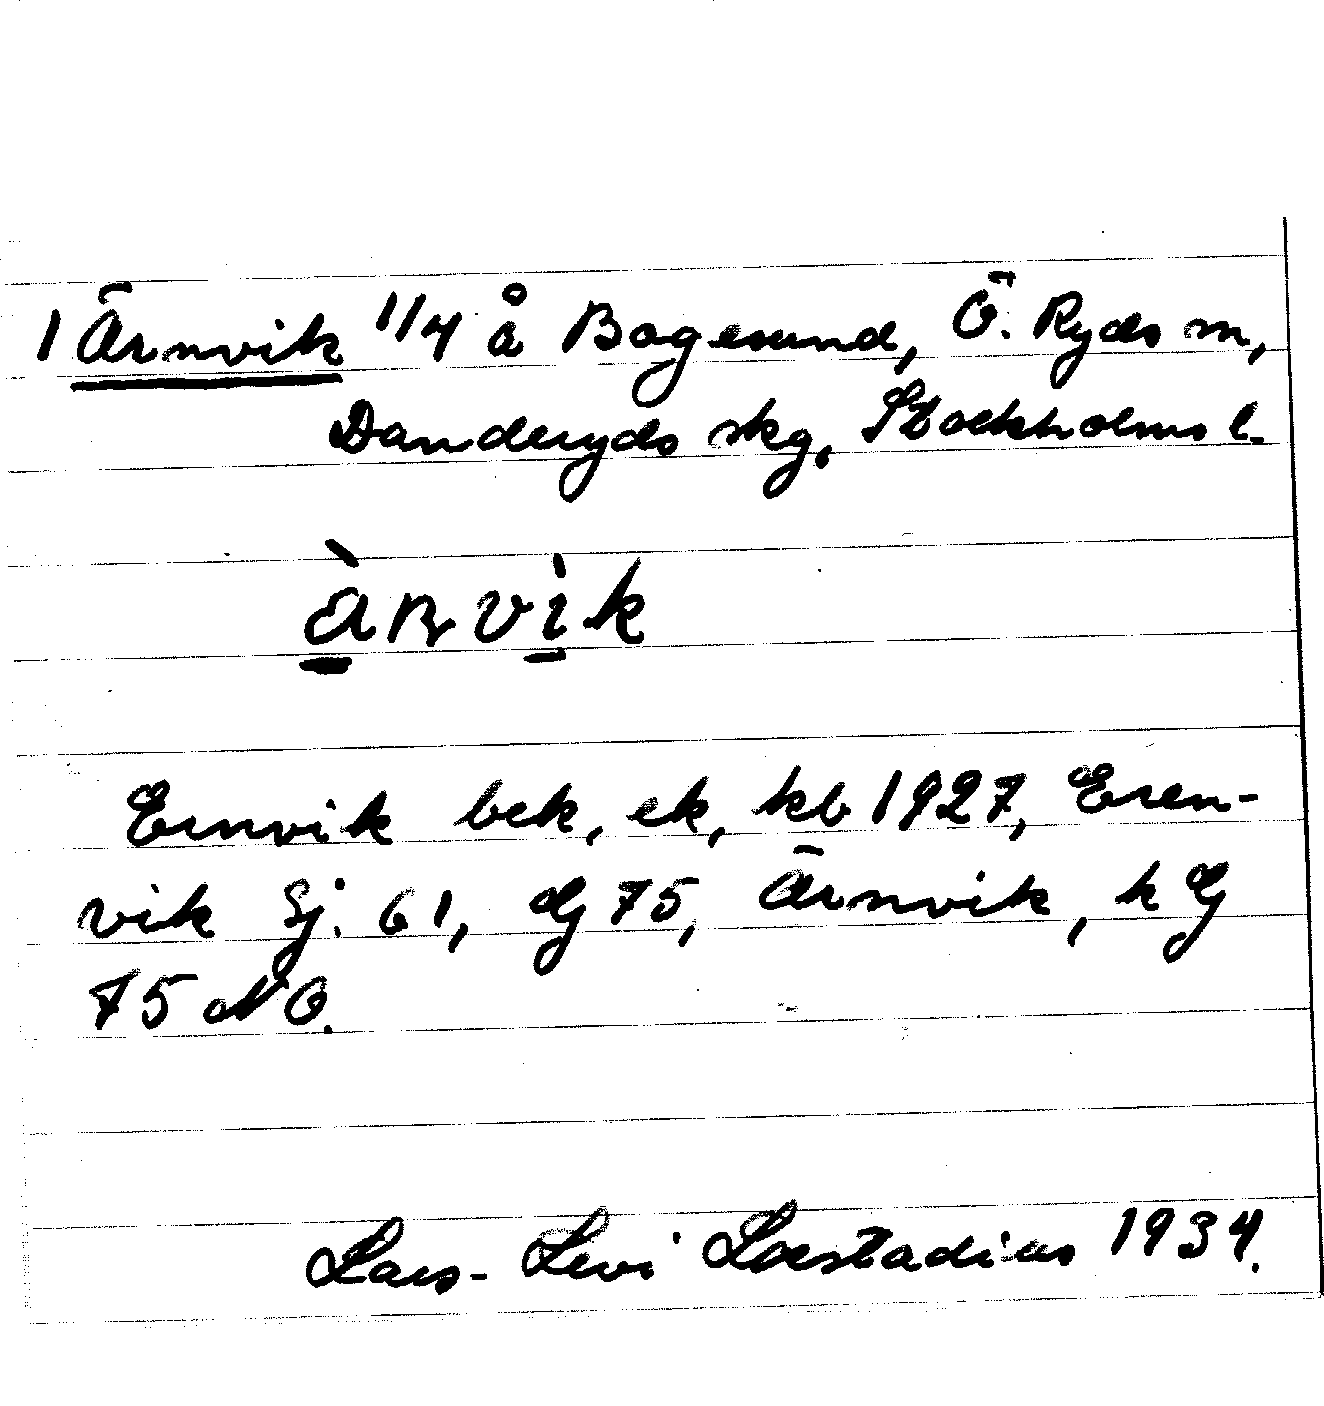 1 Ärnvik 1/4 å Bogesund, Ö. Ryds sn,
Danderyds skg, Stockholms l.
àrvìk
Ernvik bek, ek, kb 1927, Eren-
vik Sj. 61, Gj 75, Ärnvik, k Gj
75 NO.
Lars-Levi Laestadius 1934.